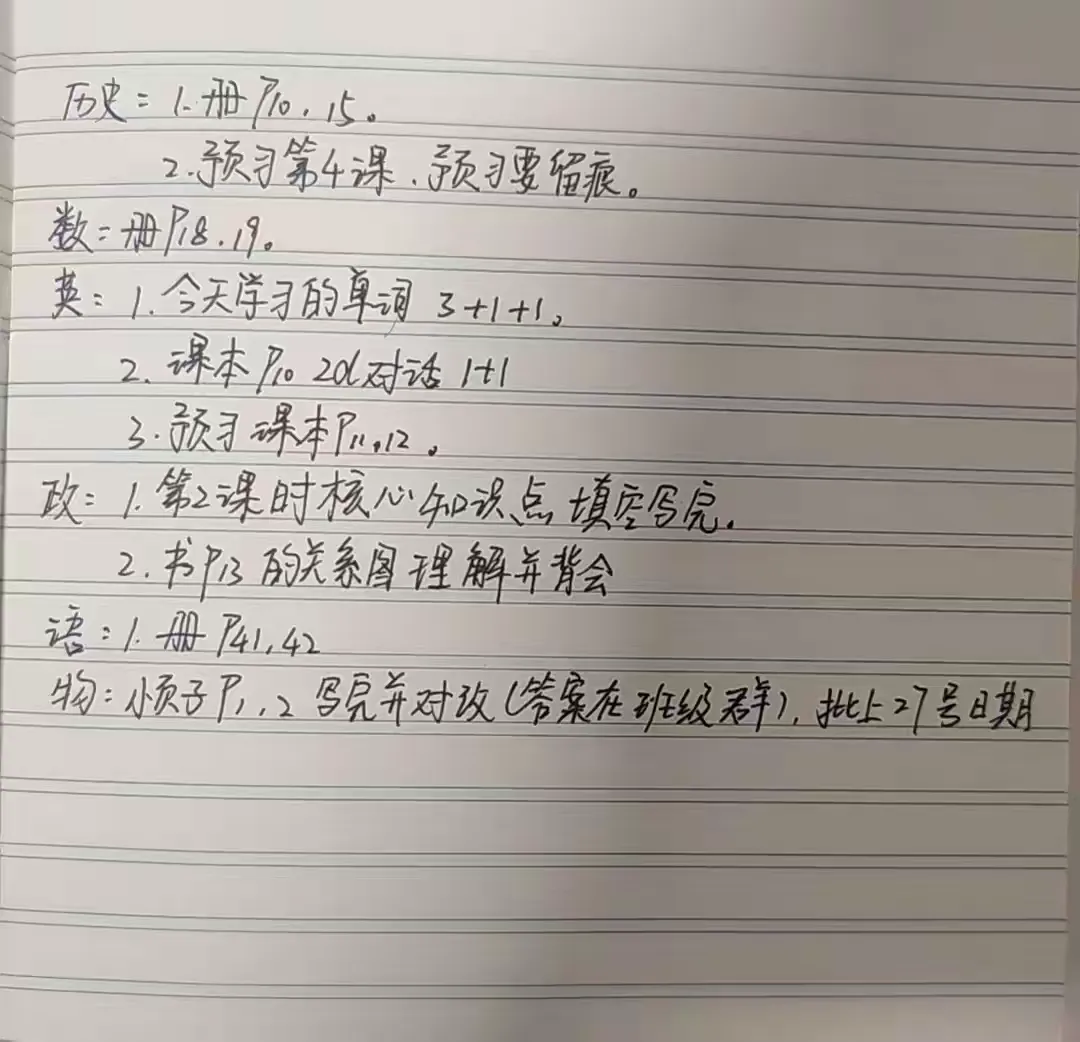 历史：1.册P10，15。
2.预习第4课、预习要留痕。
数：册P18、19。
英：1.今天学习的单词 3+1+1。
2.课本P10 2d对话 1+1
3.预习课本P11，12。
政：1.第2课时核心知识点填空写完。
2.书P13的关系图理解并背会
语：1.册P41，42
物：小页子P1，2写完并对改(答案在班级群)，批上27号日期